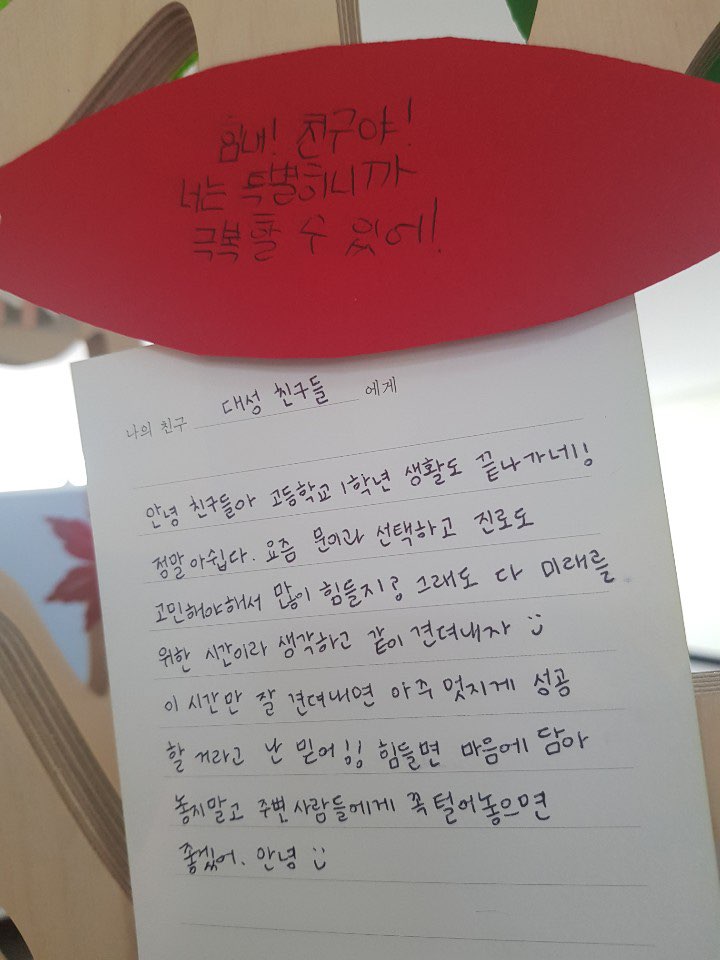 힘내! 친구야!
너는 특별하니까
극복할 수 있에!
나의 친구 대성 친구들 에게
안녕 친구들아 고등학교 1학년 생활도 끝나가네!!
정말 아쉽다. 요즘 문이과 선택하고 진로도
고민해야해서 많이 힘들지? 그래도 다 미래를
위한 시간이라 생각하고 같이 견뎌내자 :)
이 시간만 잘 견뎌내면 아주 멋지게 성공
할 거라고 난 믿어!! 힘들면 마음에 담아
놓지말고 주변 사람들에게 꼭 털어놓으면
좋겠어. 안녕 :)